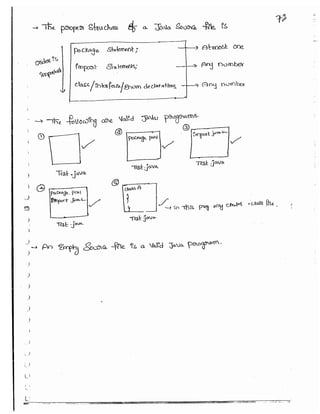 73
→ The proper Structure of a Java Source file is
Order is important
package Statement; → Atmost one
import Statements; → Any number
class/Interface/Enum declarations → Any number
→ The following are valid Java programs.
① ② package pack1 ③ import java.
Test.java Test.java Test.java
④ package pack1 ⑤ class A
import java. {
}
→ in this prog any class
Test.java Test.java
→ An Empty Source file is a valid Java program.